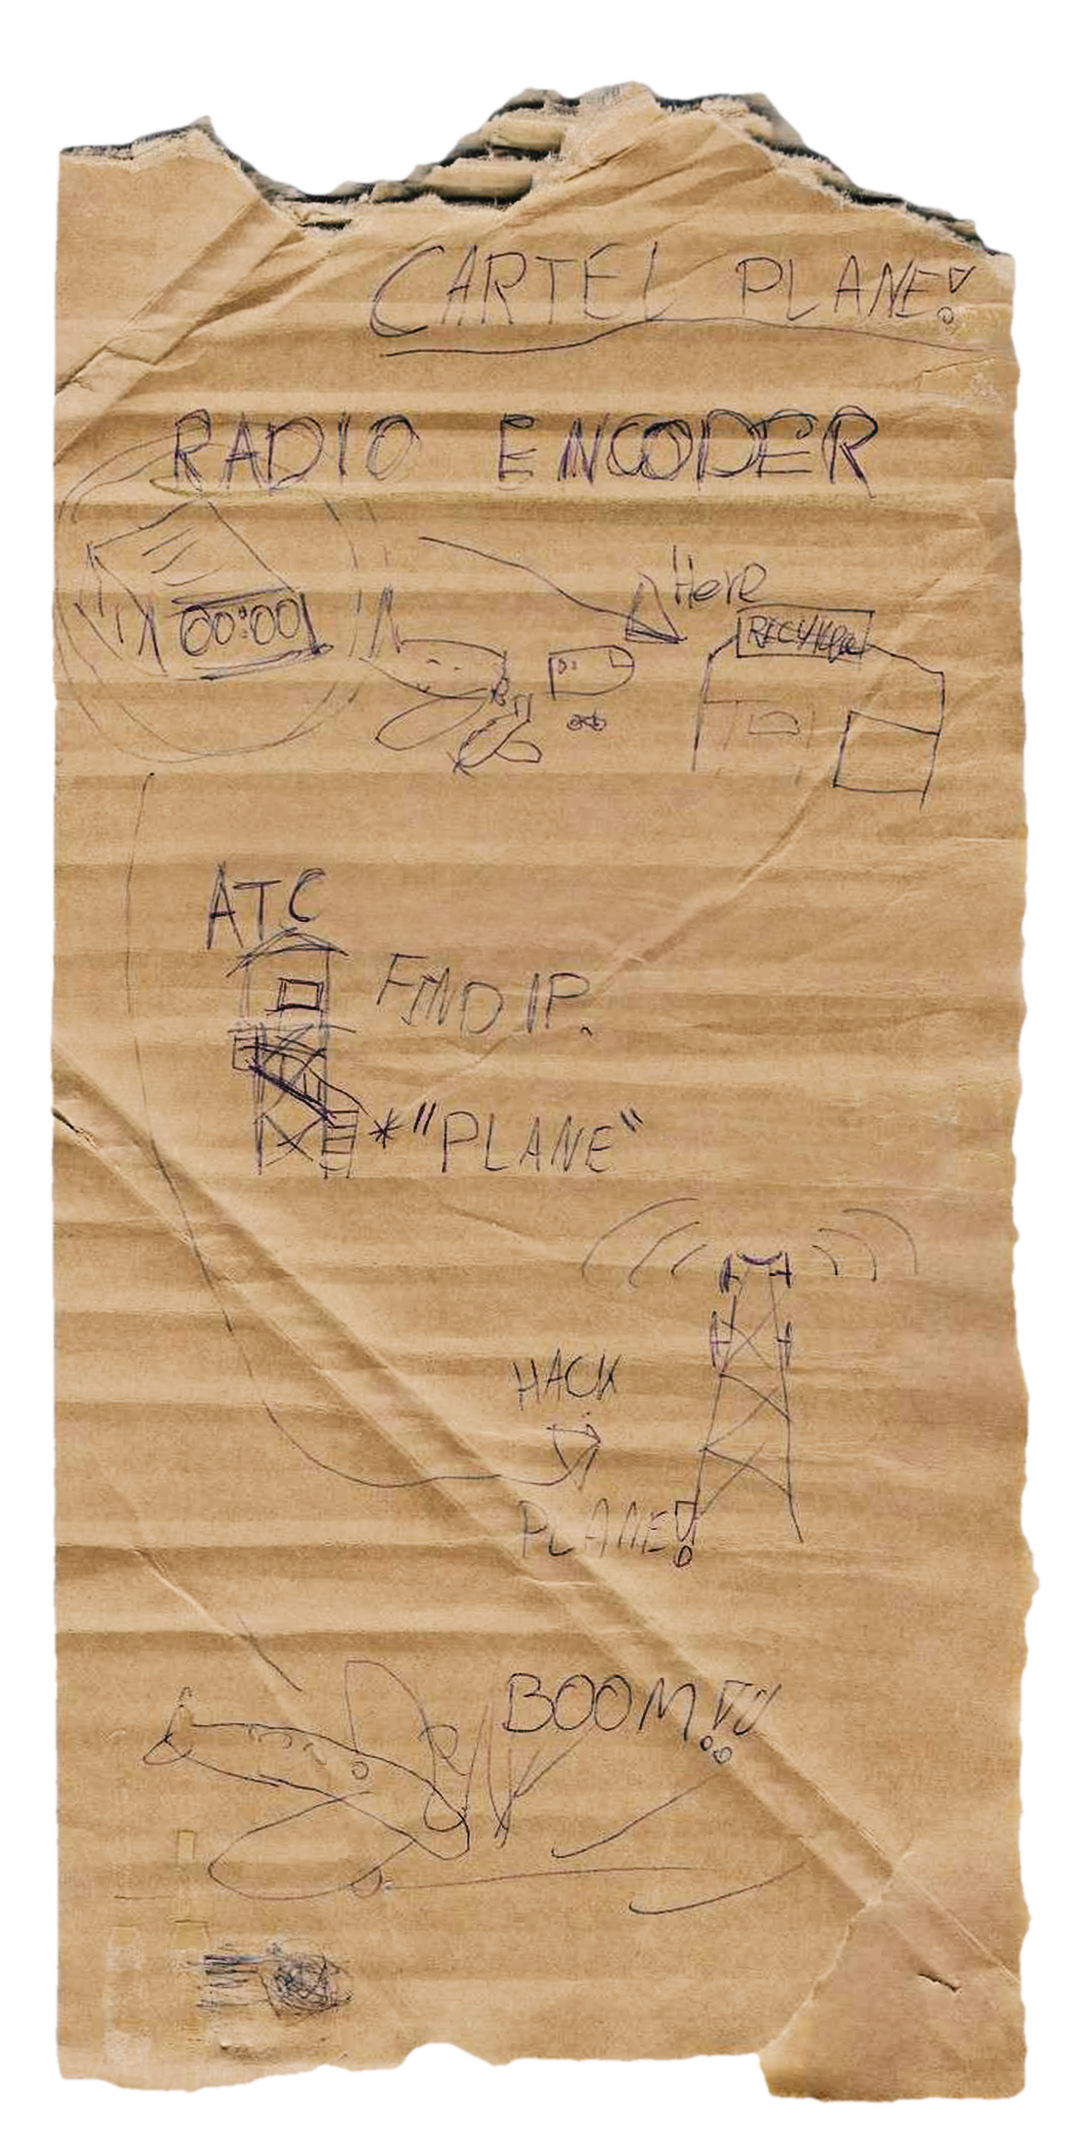 CARTEL PLANE!
RADIO ENCODER
Here
00:00
ATC
FIND IP.
*"PLANE"
HACK
PLANE!
BOOM!!